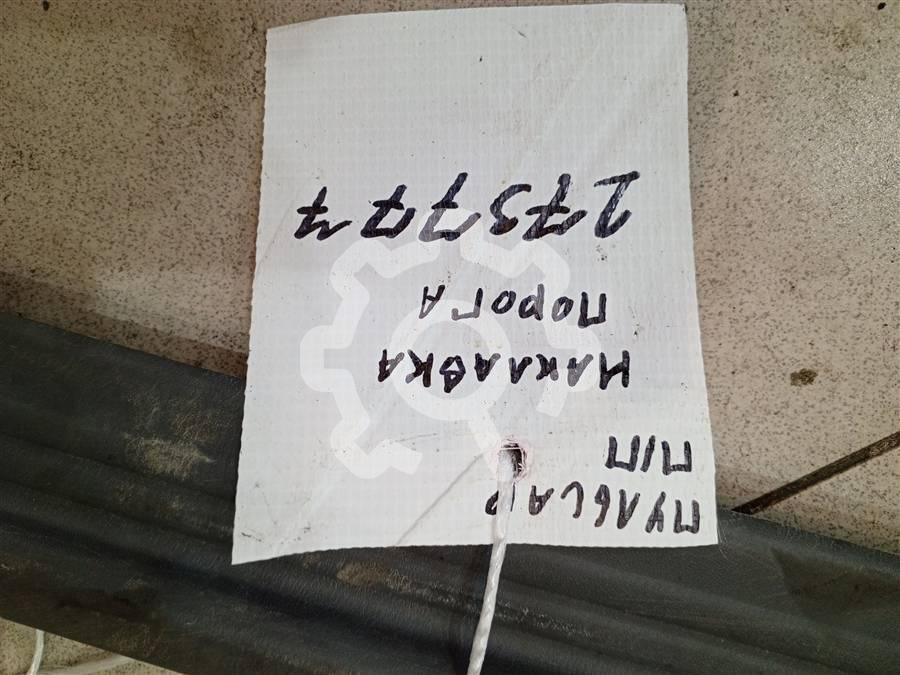 ПУЛЬСАР
П/П
НАКЛАДКА
ПОРОГА
273777